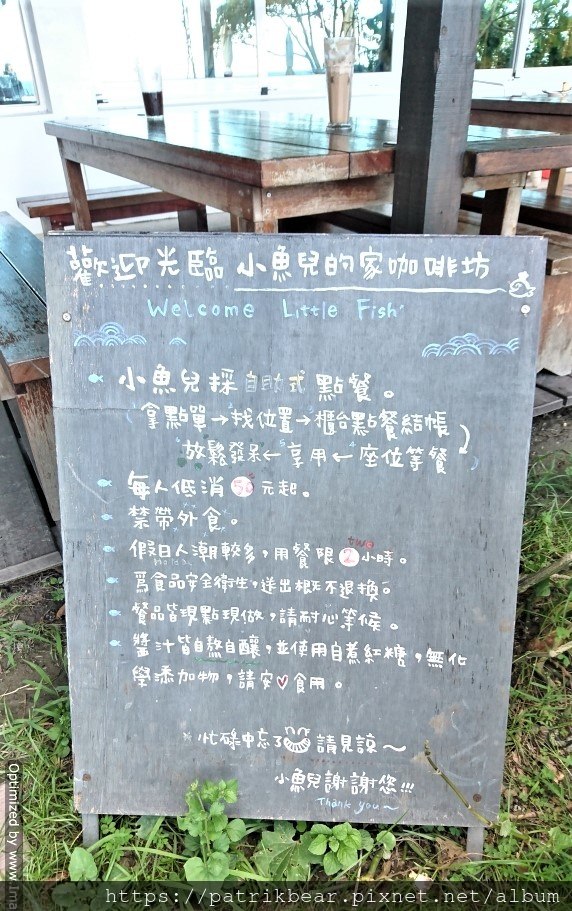 歡迎光臨 小魚兒的家咖啡坊
Welcome Little Fish
小魚兒採自助式點餐。
拿點單→找位置→櫃台點餐結帳
放鬆發呆←享用←座位等餐
每人低消50元起。
禁帶外食。
two
假日人潮較多,用餐限2小時。
Holiday
爲食品安全衛生,送出概不退換。
餐品皆現點現做,請耐心等候。
醬汁皆自熬自釀,並使用自煮紅糖,無化
學添加物,請安♡食用。
※忙碌中忘了 請見諒~
小魚兒謝謝您!!!
Thank you~
Optimized by www.Ima
https://patrikbear.pixnet.net/album